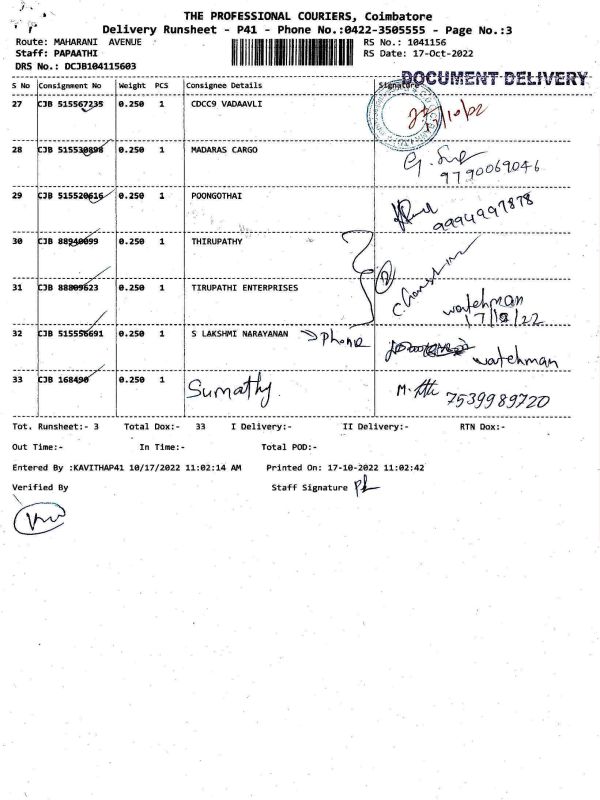 THE PROFESSIONAL COURIERS, Coimbatore
Delivery Runsheet - P41 - Phone No.:0422-3505555 - Page No.:3
Route: MAHARANI AVENUE RS No.: 1041156
Staff: PAPAATHI RS Date: 17-Oct-2022
DRS No.: DCJB104115603
DOCUMENT DELIVERY
S No Consignment No Weight PCS Consignee Details Signature
27 CJB 515567235 0.250 1 CDCC9 VADAAVLI
28 CJB 515530898 0.250 1 MADARAS CARGO
9790069046
29 CJB 515520616 0.250 1 POONGOTHAI 9994997878
30 CJB 88940099 0.250 1 THIRUPATHY
31 CJB 88809623 0.250 1 TIRUPATHI ENTERPRISES watehman
32 CJB 515556691 0.250 1 S LAKSHMI NARAYANAN Phone watehman
33 CJB 168490 0.250 1 Sumathy 7539989720
Tot. Runsheet:- 3 Total Dox:- 33 I Delivery:- II Delivery:- RTN Dox:-
Out Time:- In Time:- Total POD:-
Entered By :KAVITHAP41 10/17/2022 11:02:14 AM Printed On: 17-10-2022 11:02:42
Verified By Staff Signature